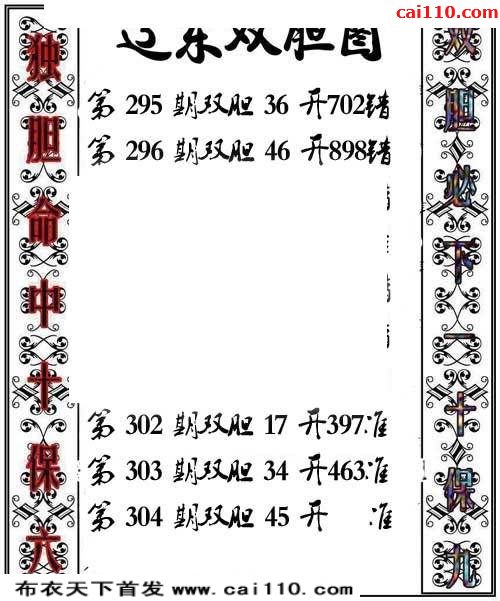 cai110.com
东双胆图
独胆命中十保六
第 295 期双胆 36 开702错
第 296 期双胆 46 开898错
第 302 期双胆 17 开397准
第 303 期双胆 34 开463准
第 304 期双胆 45 开 准
双胆必下一十保九
布衣天下首发 www.cai110.com